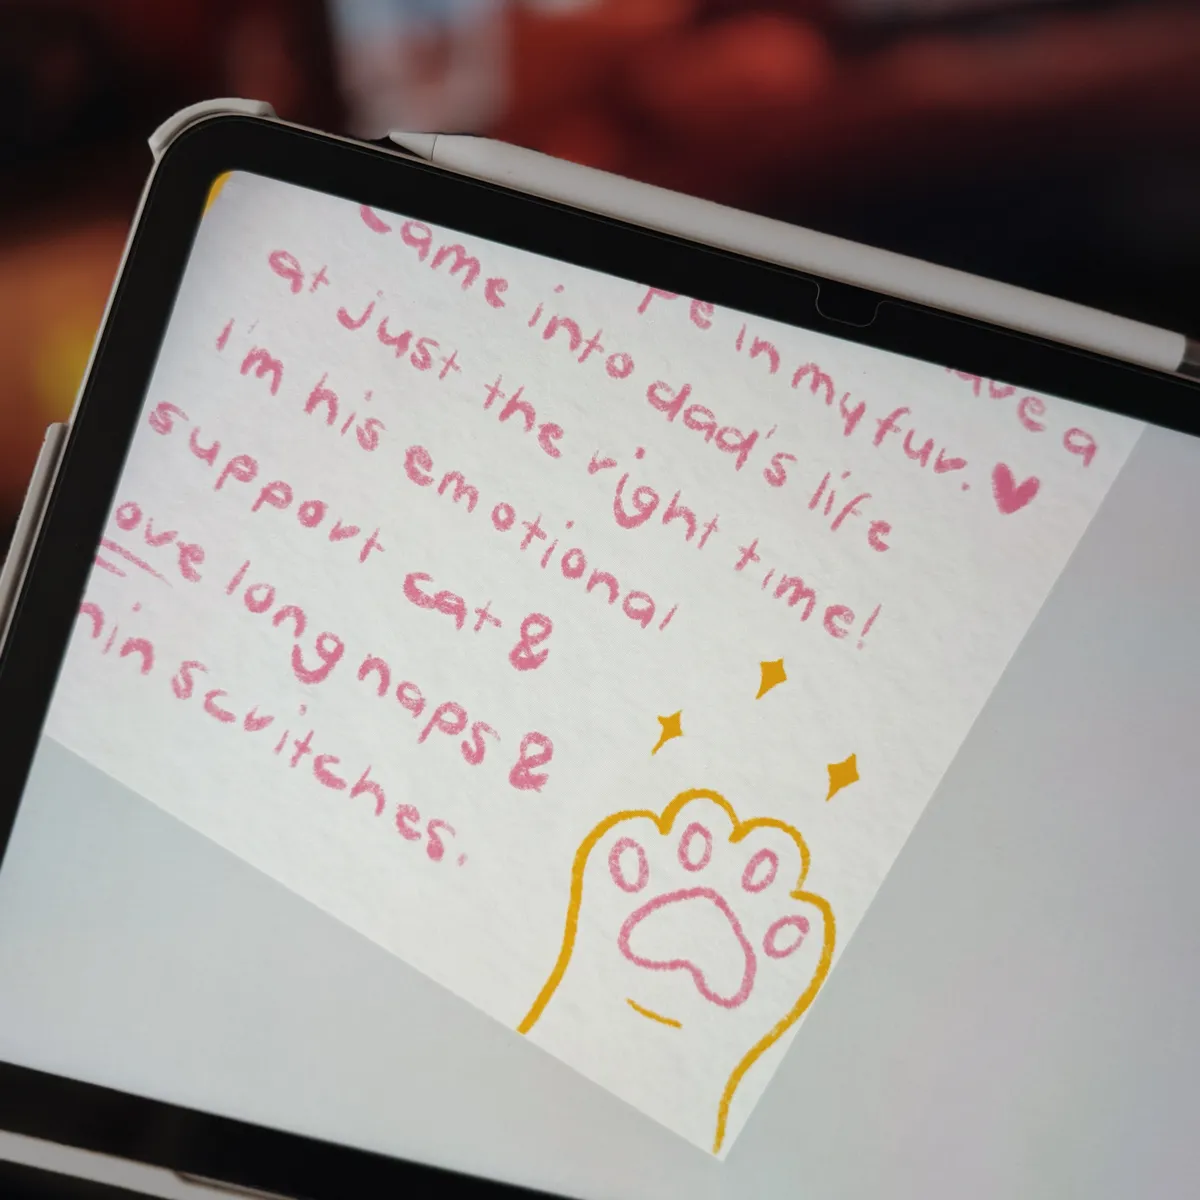 a
in my fur. ♥
came into dad's life
at just the right time!
I'm his emotional
support cat &
ove long naps &
hin scritches.